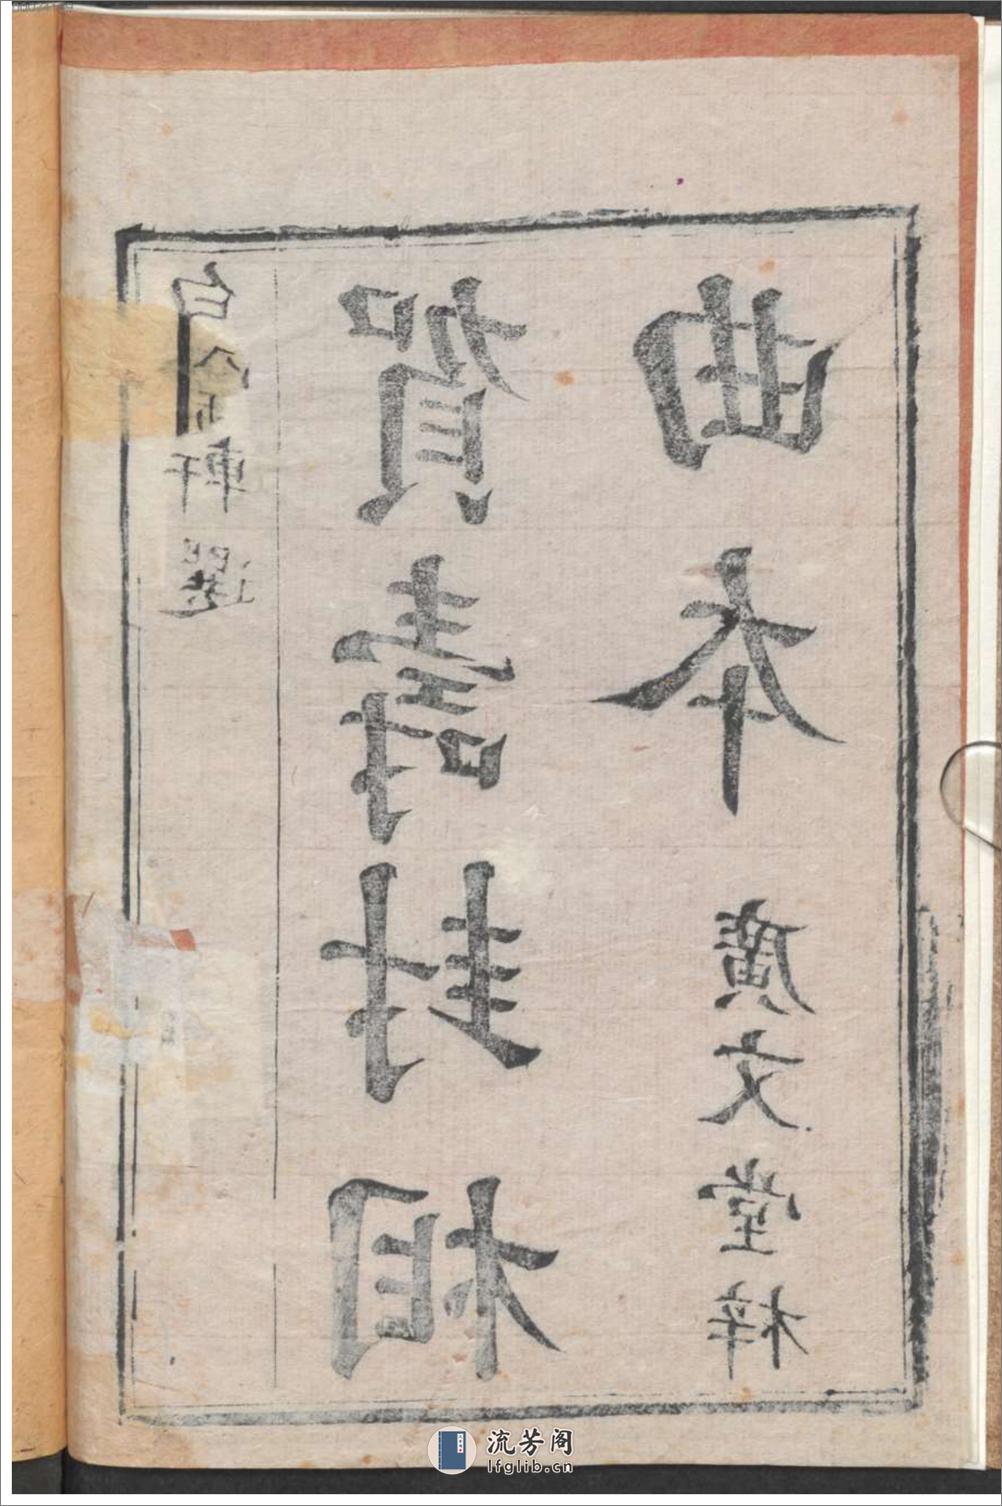 白軒選
賀壽封相
曲本
廣文堂梓
流芳阁
lfglib.cn